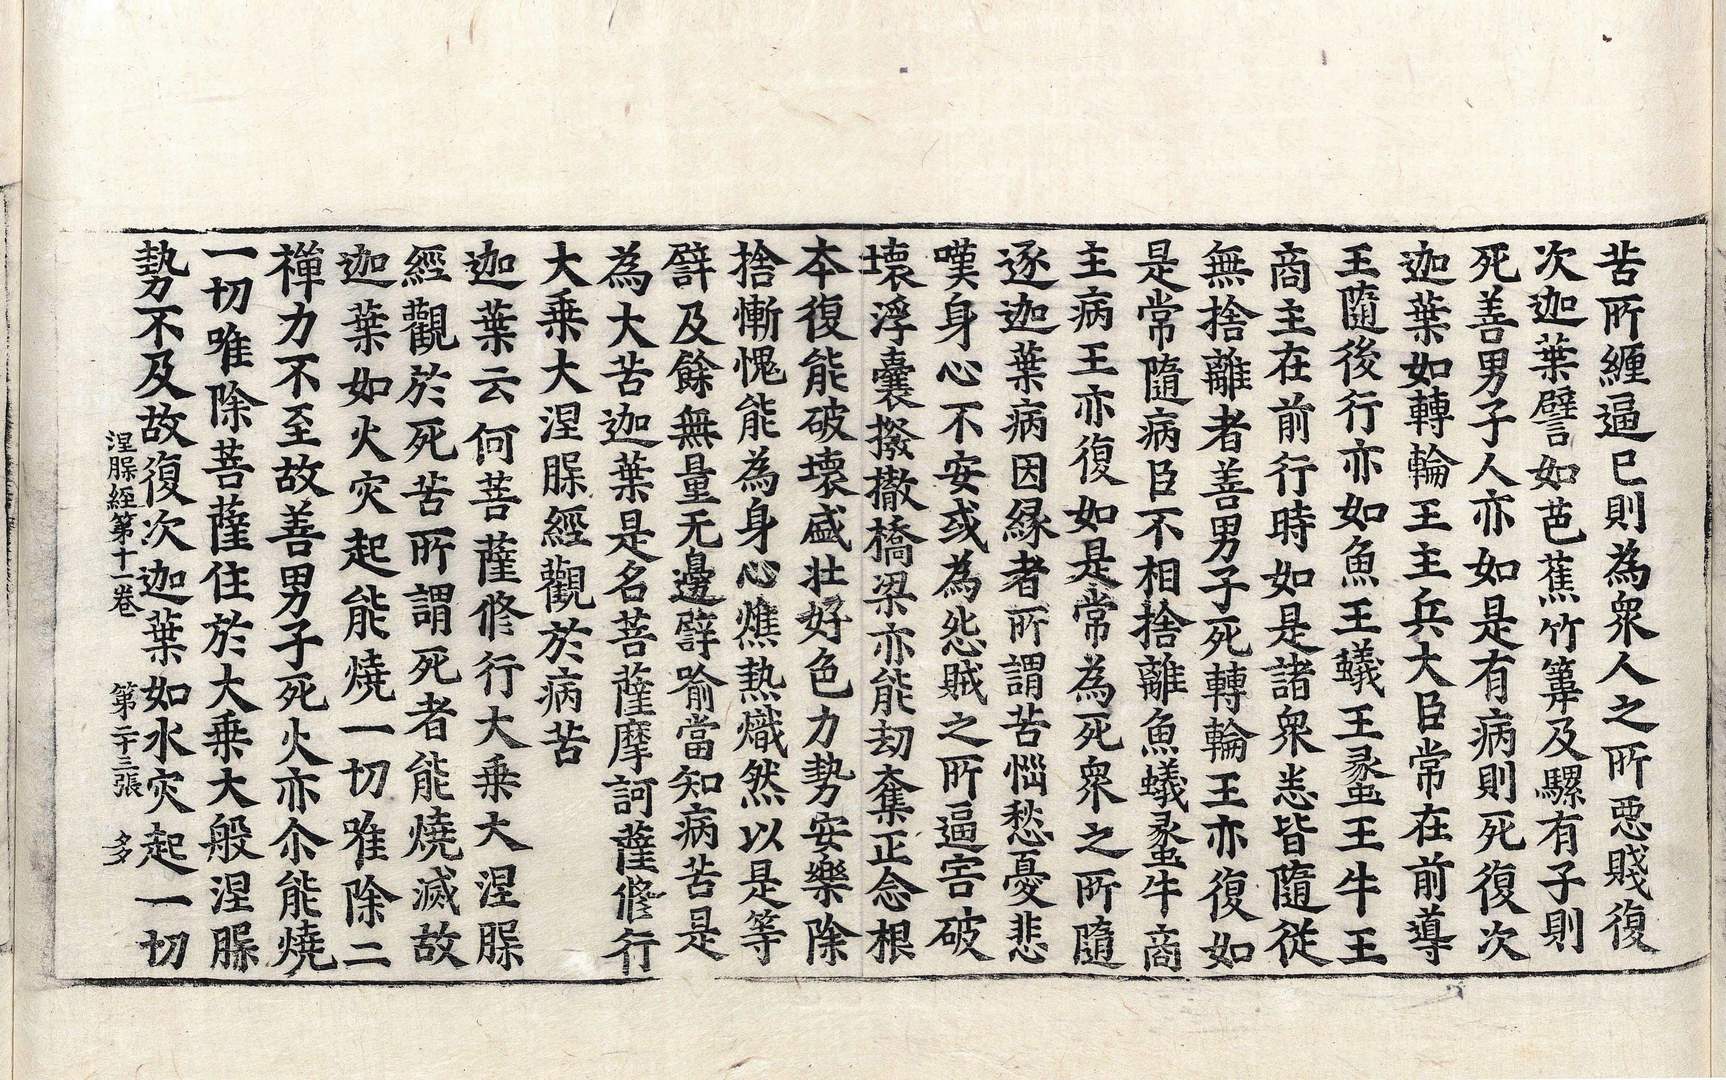 苦所纏逼已則為衆人之所惡賤復
次迦葉譬如芭蕉竹𥯤及騾有子則
死善男子人亦如是有病則死復次
迦葉如轉輪王主兵大臣常在前導
王隨後行亦如魚王蟻王蠡王牛王
商主在前行時如是諸衆悉皆隨從
無捨離者善男子死轉輪王亦復如
是常隨病臣不相捨離魚蟻蠡牛商
主病王亦復如是常為死衆之所隨
逐迦葉病因緣者所謂苦惱愁憂悲
嘆身心不安或為怨賊之所逼害破
壞浮囊撥撤橋梁亦能劫奪正念根
本復能破壞盛壯好色力勢安樂除
捨慚愧能為身心燋熱熾然以是等
譬及餘無量无邊譬喻當知病苦是
為大苦迦葉是名菩薩摩訶薩修行
大乘大涅槃經觀於病苦
迦葉云何菩薩修行大乘大涅槃
經觀於死苦所謂死者能燒滅故
迦葉如火灾起能燒一切唯除二
禪力不至故善男子死火亦尒能燒
一切唯除菩薩住於大乘大般涅槃
勢不及故復次迦葉如水灾起一切
涅槃經第十一卷 第二十三張 多